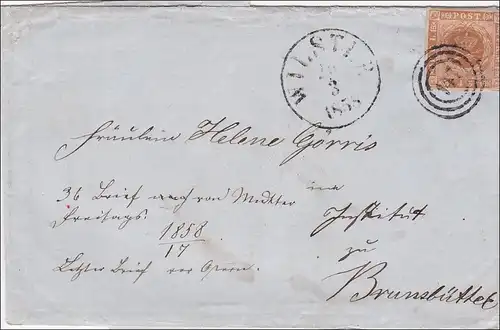 POST
WILSTER
3
185
Fräulein Helene Görris
36 Brief von Mutter
im
freitags.
Institut
1858
17
zu
Letzter Brief vor Ostern.
Brunsbüttel